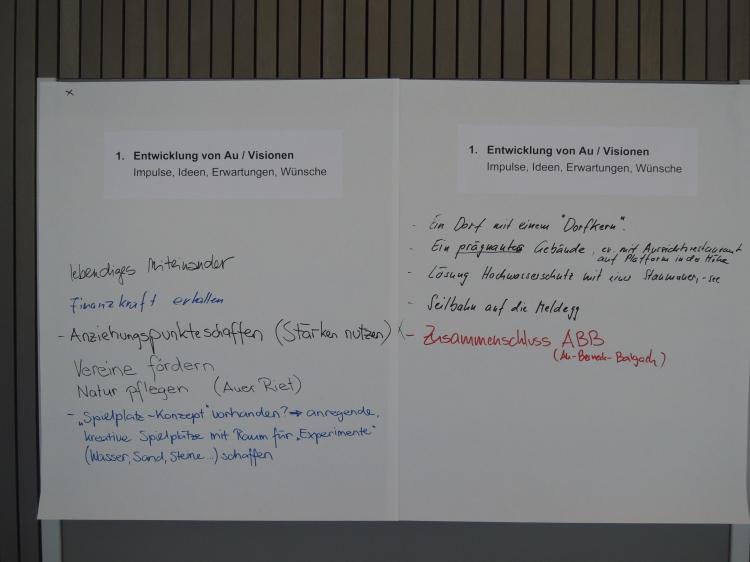 x
1. Entwicklung von Au / Visionen
Impulse, Ideen, Erwartungen, Wünsche
lebendiges Miteinander
Finanzkraft erhalten
- Anziehungspunkte schaffen (Stärken nutzen)
Vereine fördern
Natur pflegen (Auer Riet)
- „Spielplatz-Konzept" vorhanden? → anregende,
kreative Spielplätze mit Raum für „Experimente"
(Wasser, Sand, Steine...) schaffen
1. Entwicklung von Au / Visionen
Impulse, Ideen, Erwartungen, Wünsche
- Ein Dorf mit einem "Dorfkern".
- Ein prägnantes Gebäude, ev. mit Aussichtsrestaurant
auf Platform in der Höhe
- Lösung Hochwasserschutz mit einer Staumauer, -see
- Seilbahn auf die Meldegg
- Zusammenschluss ABB
(Au-Berneck-Balgach)